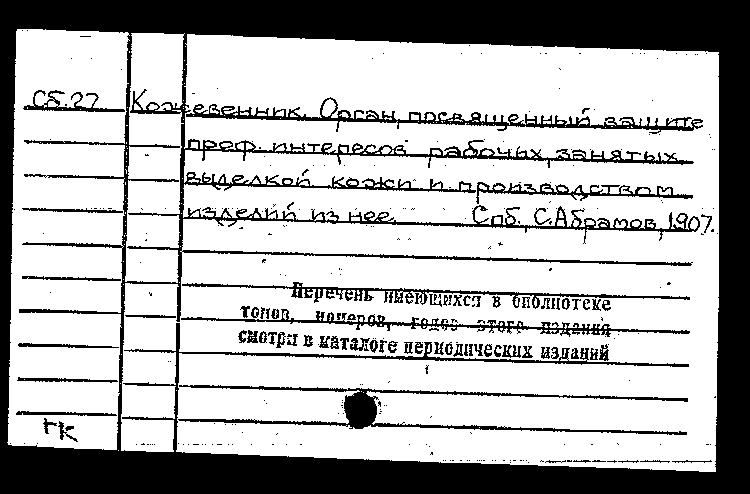 Сб.27 Кожевенник. Орган, посвященный защите
проф. интересов рабочих, занятых
выделкой кожи и производством
изделий из нее. Спб., С.Абрамов, 1907.
Перечень имеющихся в библиотеке
томов, номеров, годов этого издания
смотри в каталоге периодических изданий
гк